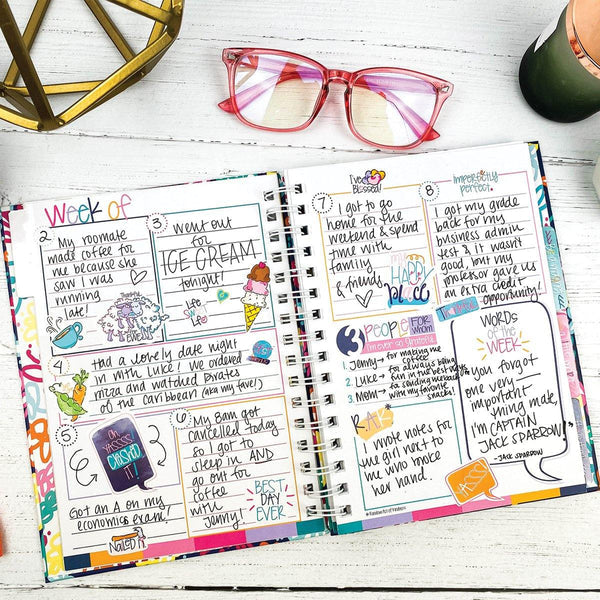 Week of
2
My roomate
made coffee for
me because she
saw I was
running
late!
3
went out
for
ICE CREAM
tonight!
life
is
4
Had a lovely date night
in with Luke! We ordered
pizza and watched Pirates
of the Caribbean (aka my fave!)
5
Oh
YASSSS!
CRUSHED
IT!
Got an A on my
economics exam!
Nailed it
6
My 8am got
cancelled today
so I got to
sleep in AND
go out for
coffee
with
Jenny!
BEST
DAY
EVER
Tweet
Blessed!
7
I got to go
home for the
weekend & spend
time with
family
& friends
my
HAPPY
place
imperfectly
perfect.
8
I got my grade
back for my
business admin
test & it wasn't
good, but my
professor gave us
an extra credit
opportunity!
3 PEOPLE FOR
whom
I'm ever so Grateful
1. Jenny → for making me
2. Luke → for always being
him in the best ways
3. Mom → for sending
with my favorite
snacks!
R.A.K.
I wrote notes for
the girl next to
me who broke
her hand.
# Random Act of Kindness
WORDS
of the
WEEK
"You forgot
one very
important
thing mate,
I'm CAPTAIN
JACK SPARROW"
-JACK SPARROW
YASSS!